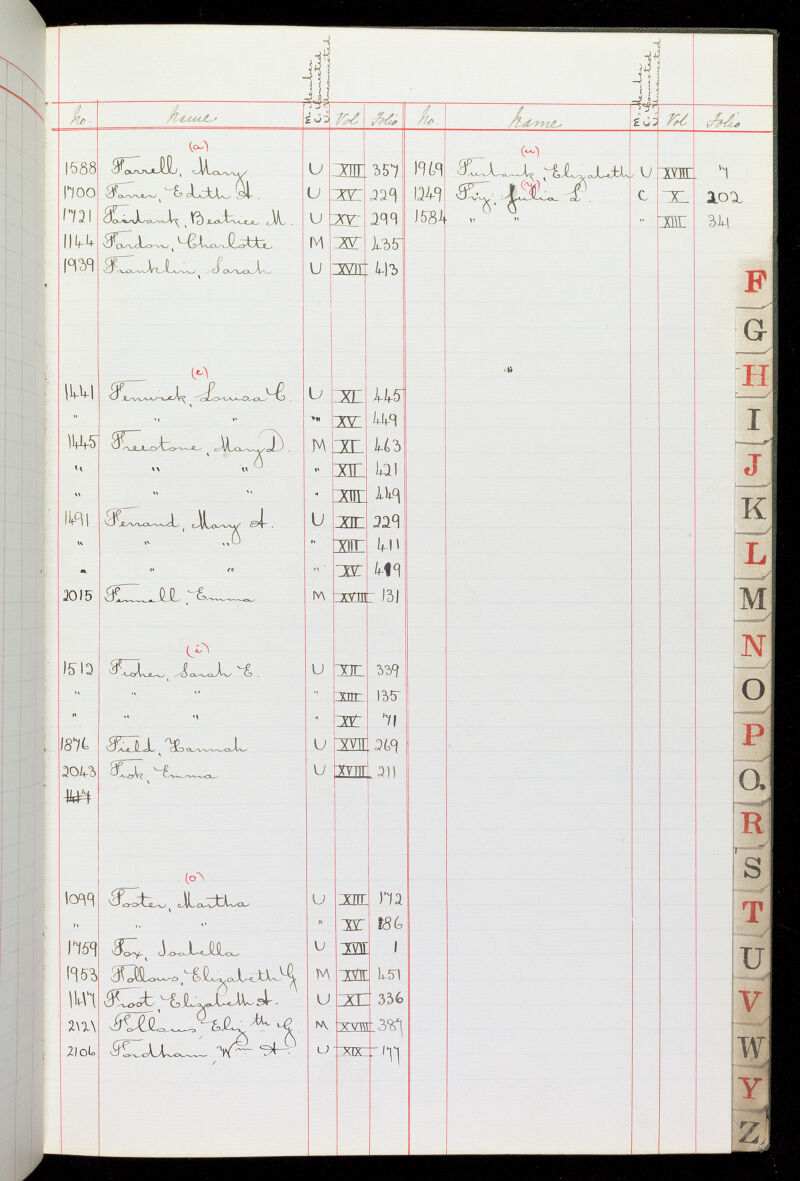 M. Member
C. Connected
U. Unconnected
M. Member
C. Connected
U. Unconnected
No. Name Vol Folio No. Name Vol Folio
(a)
1588 Farrell, Mary U XIII 357
1700 Farrer, Edith A. U XV 229
1721 Fairbank, Beatrice M. U XV 299
1144 Fardon, Charlotte M XV 435
1939 Franklin, Sarah U XVII 413
(e)
1441 Fenwick, Louisa C. U XI 445
" " " " XV 449
1445 Freestone, Mary D. M XI 463
" " " " XII 421
" " " " XIII 449
1491 Ferrand, Mary A. U XII 229
" " " " XIII 411
" " " " XV 419
2015 Fennell, Emma M XVIII 131
(i)
1512 Fisher, Sarah E. U XII 339
" " " " XIII 135
" " " " XV 71
1876 Field, Hannah U XVII 269
2043 Fisk, Emma U XVIII 211
1417
(o)
1099 Foster, Martha U XIII 172
" " " " XV 186
1759 Fox, Isabella U XVII 1
1953 Follows, Elizabeth G M XVII 451
1417 Froot, Elizabeth A. U XI 336
2121 Follows Eliz th G. M XVIII 387
2106 Fordham, Wm A. U XIX 177
(u)
1969 Furbank, Elizabeth U XVIII 7
(y)
1249 Fry, Julia L. C X 202
1584 " " " XIII 341
"
F
G
H
I
J
K
L
M
N
O
P
Q.
R
S
T
U
V
W
Y
Z